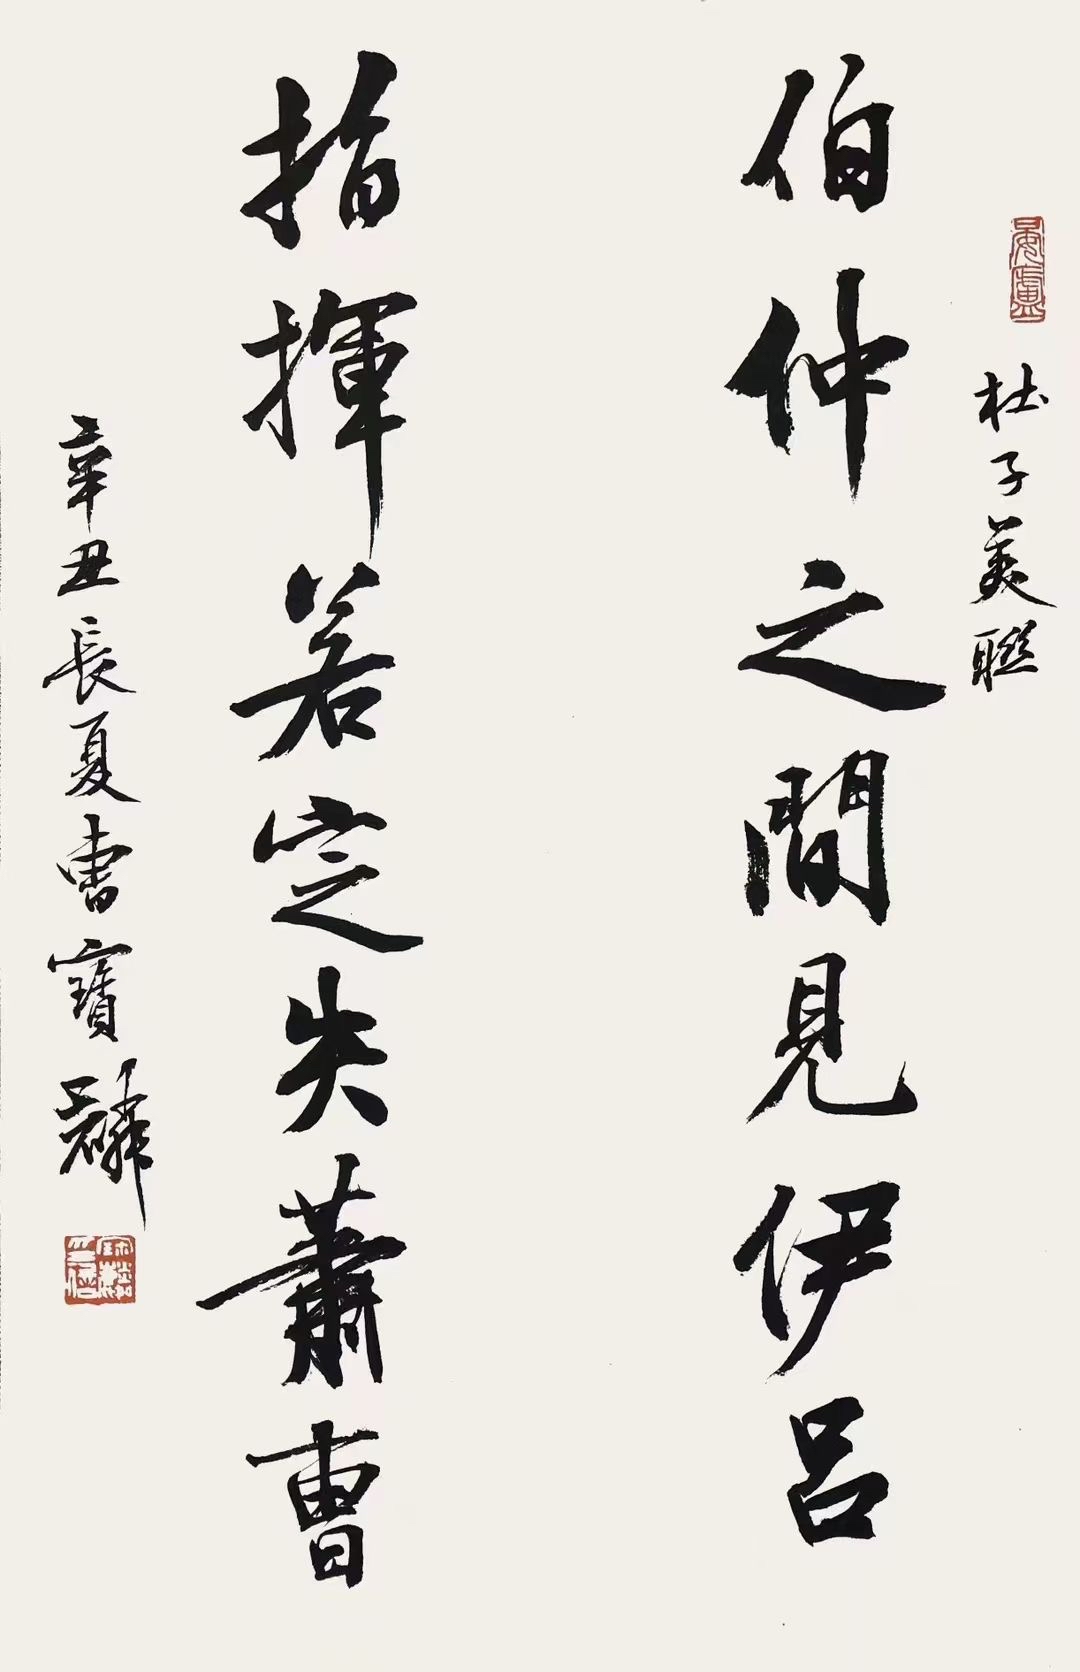 杜子美聯
伯仲之間見伊呂
指揮若定失蕭曹
辛丑長夏曹寶麟